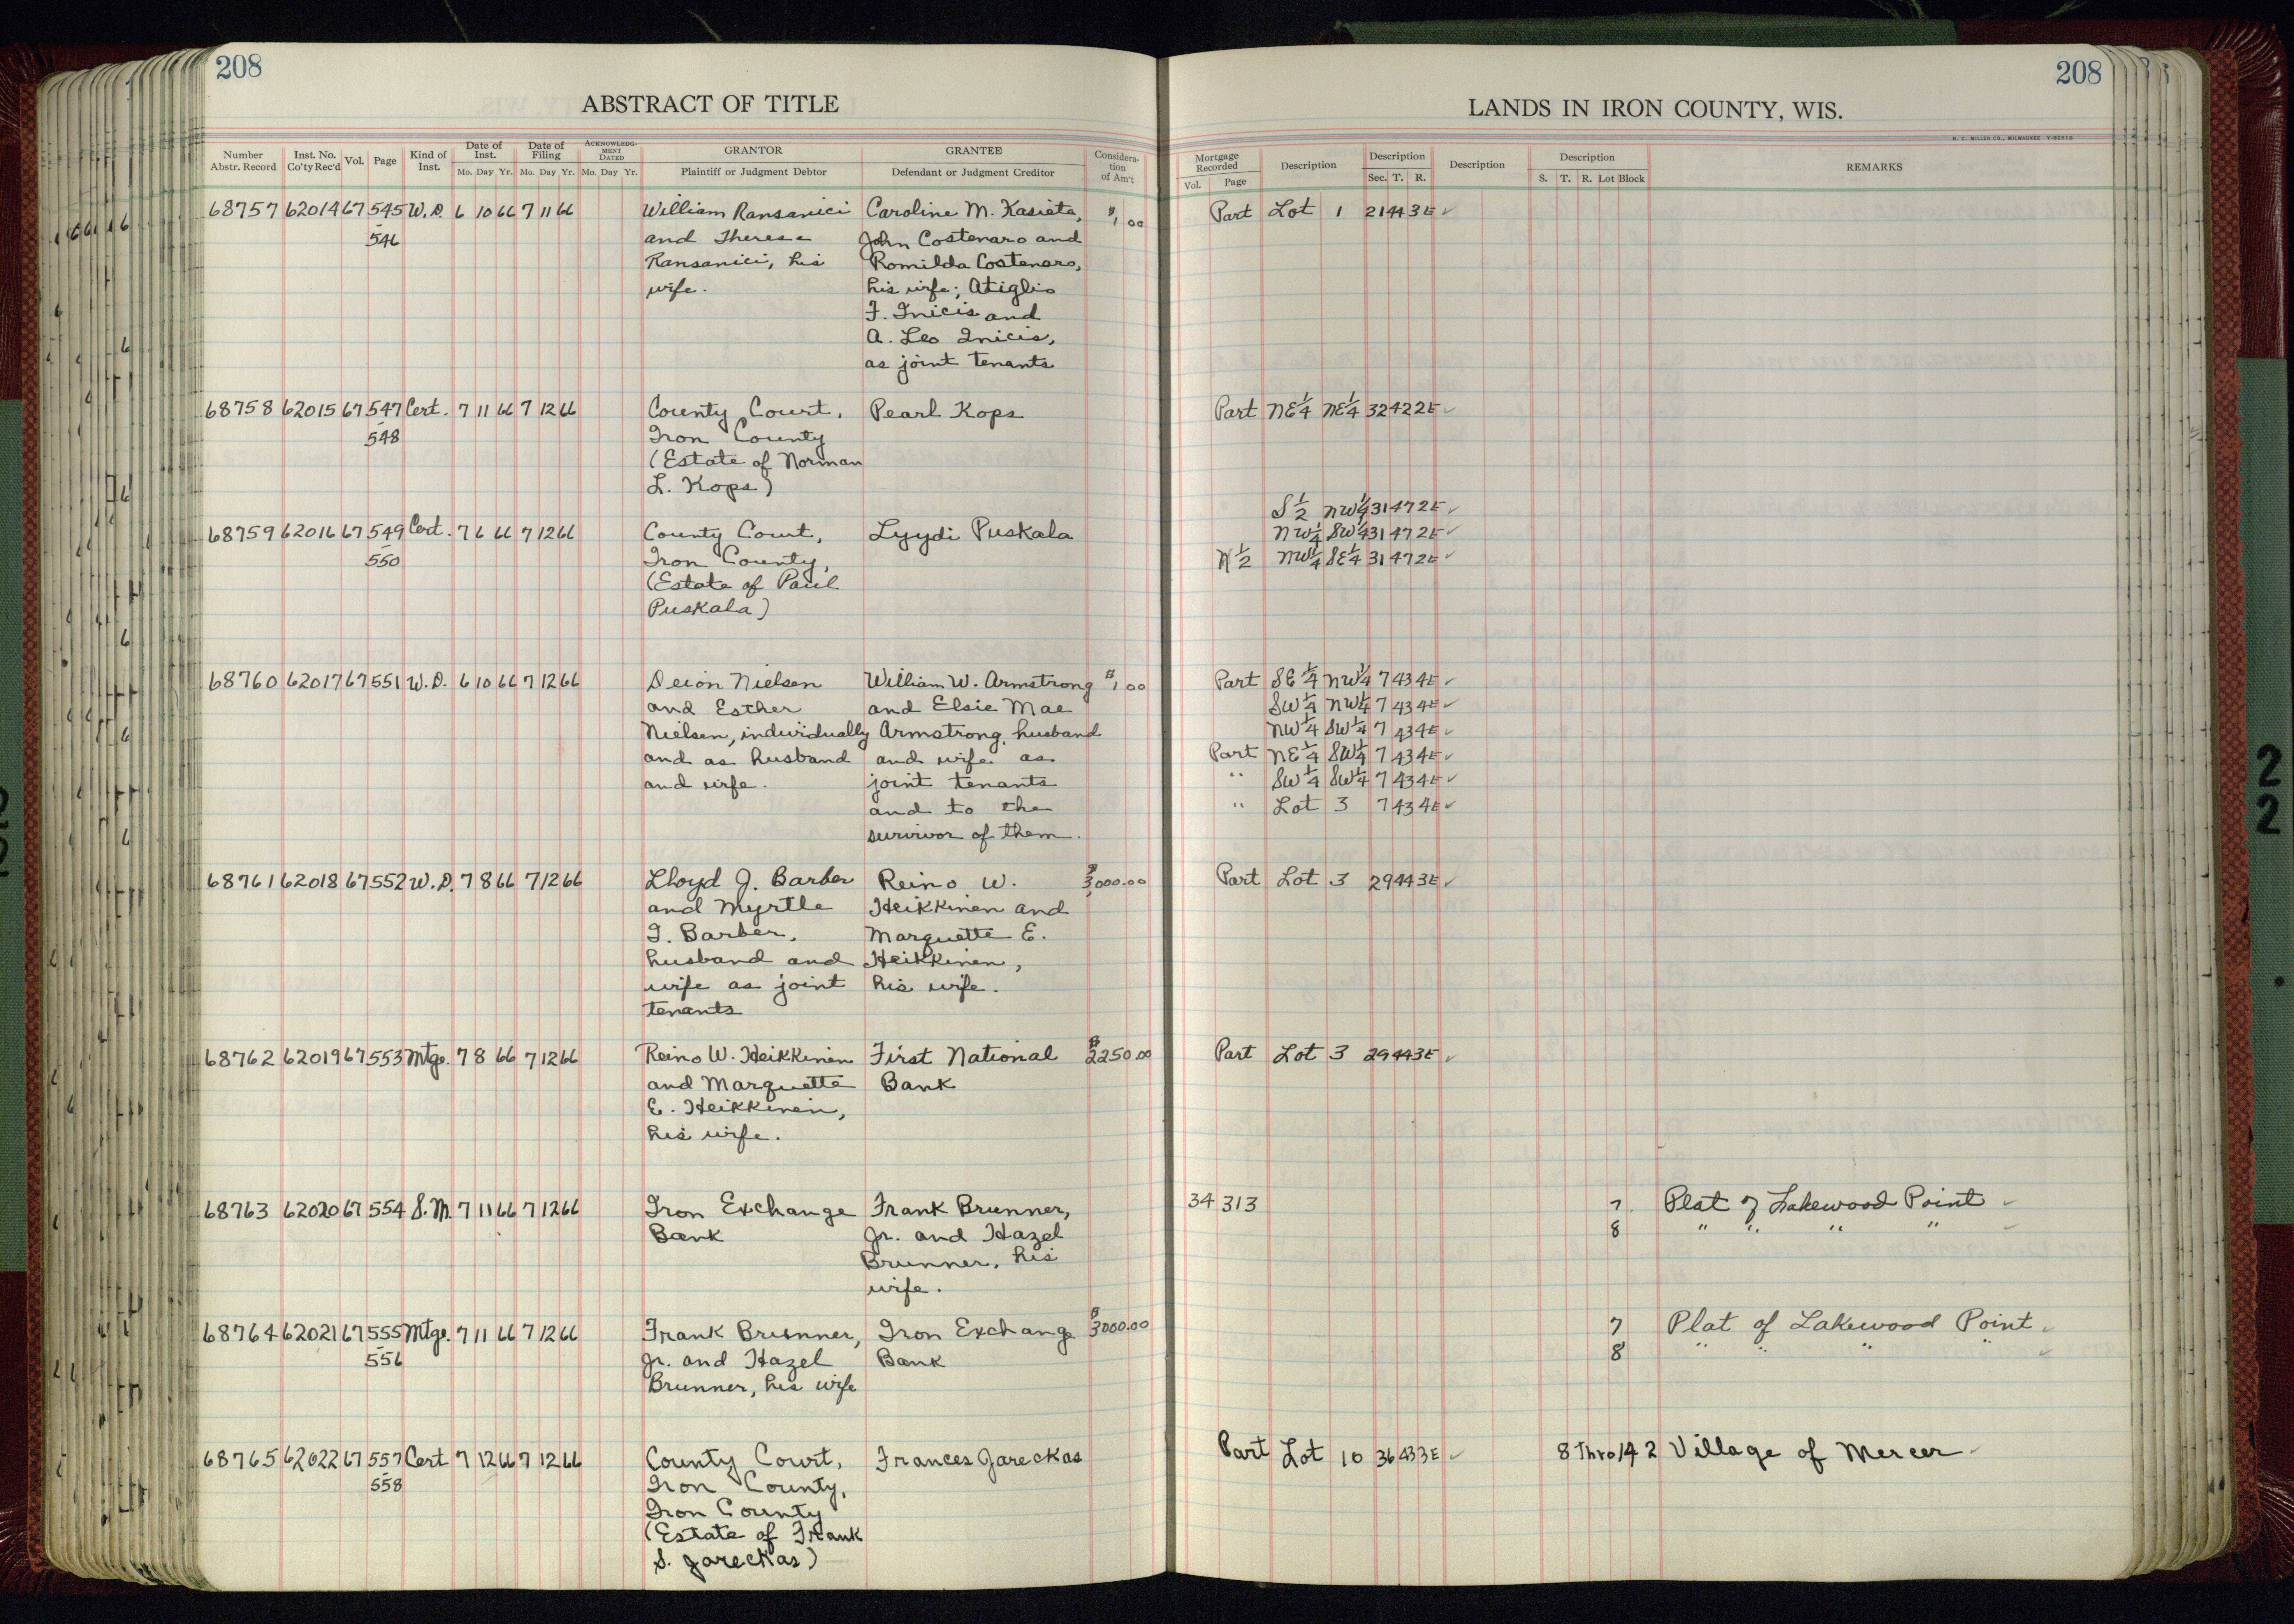 208
ABSTRACT OF TITLE
Number Abstr. Record | Inst. No. Co'ty Rec'd | Vol. | Page | Kind of Inst. | Date of Inst. Mo. Day Yr. | Date of Filing Mo. Day Yr. | ACKNOWLEDGMENT DATED Mo. Day Yr. | GRANTOR Plaintiff or Judgment Debtor | GRANTEE Defendant or Judgment Creditor | Consideration of Am't
68757 62014 67 545 W.D. 6 10 66 7 11 66 William Ransanici Caroline M. Kasieta, $1.00
546 and Therese John Costenaro and
Ransanici, his Romilda Costenaro,
wife. his wife; Atiglio
F. Inicis and
A. Leo Inicis,
as joint tenants
68758 62015 67 547 Cert. 7 11 66 7 12 66 County Court, Pearl Kops
548 Iron County
(Estate of Norman
L. Kops)
68759 62016 67 549 Cert. 7 6 66 7 12 66 County Court, Lyydi Puskala
550 Iron County,
(Estate of Paul
Puskala)
68760 62017 67 551 W.D. 6 10 66 7 12 66 Deion Nielsen William W. Armstrong $1.00
and Esther and Elsie Mae
Nielsen, individually Armstrong, husband
and as husband and wife as
and wife. joint tenants
and to the
survivor of them.
68761 62018 67 552 W.D. 7 8 66 7 12 66 Lloyd J. Barber Reino W. $3,000.00
and Myrtle Heikkinen and
I. Barber, Marquette E.
husband and Heikkinen,
wife as joint his wife.
tenants
68762 62019 67 553 Mtge. 7 8 66 7 12 66 Reino W. Heikkinen First National $2250.00
and Marquette Bank
E. Heikkinen,
his wife.
68763 62020 67 554 S.M. 7 11 66 7 12 66 Iron Exchange Frank Brunner,
Bank Jr. and Hazel
Brunner, his
wife.
68764 62021 67 555 Mtge. 7 11 66 7 12 66 Frank Brunner, Iron Exchange $3000.00
556 Jr. and Hazel Bank
Brunner, his wife
68765 62022 67 557 Cert 7 12 66 7 12 66 County Court, Frances Jareckas
558 Iron County,
Iron County
(Estate of Frank
S. Jareckas)
208
LANDS IN IRON COUNTY, WIS.
H. C. MILLER CO., MILWAUKEE
Mortgage Recorded Vol. Page | Description | Description Sec. T. R. | Description | Description S. T. R. Lot Block | REMARKS
Part Lot 1 21 44 3E ✓
Part NE¼ NE¼ 32 42 2E ✓
S½ NW¼ 31 47 2E ✓
NW¼ SW¼ 31 47 2E ✓
N½ NW¼ SE¼ 31 47 2E ✓
Part SE¼ NW¼ 7 43 4E ✓
SW¼ NW¼ 7 43 4E ✓
NW¼ SW¼ 7 43 4E ✓
Part NE¼ SW¼ 7 43 4E ✓
" SW¼ SW¼ 7 43 4E ✓
" Lot 3 7 43 4E ✓
Part Lot 3 29 44 3E ✓
Part Lot 3 29 44 3E ✓
34 313 7 Plat of Lakewood Point ✓
8 " " " " ✓
7 Plat of Lakewood Point ✓
8 " " " " ✓
Part Lot 10 36 43 3E ✓ 8 Thro 14 2 Village of Mercer ✓
2
2